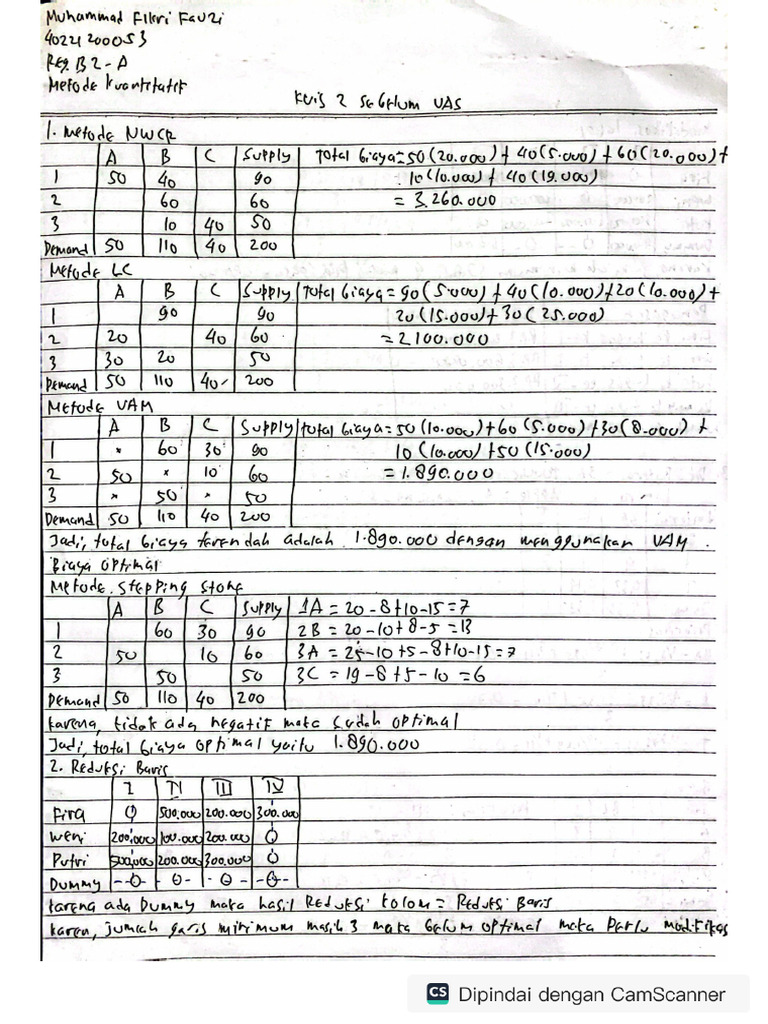 Muhammad Fikri Fauzi
40221200053
Reg. B2 - A
Metode Kuantitatif
Kuis 2 Sebelum UAS
1. Metode NWCR
A B C Supply Total biaya = 50 (20.000) + 40 (5.000) + 60 (20.000) +
1 50 40 90 10 (10.000) + 40 (19.000)
2 60 60 = 3.260.000
3 10 40 50
Demand 50 110 40 200
Metode LC
A B C Supply Total biaya = 90 (5.000) + 40 (10.000) + 20 (10.000) +
1 90 90 20 (15.000) + 30 (25.000)
2 20 40 60 = 2.100.000
3 30 20 50
Demand 50 110 40 200
Metode VAM
A B C Supply total biaya = 50 (10.000) + 60 (5.000) + 30 (8.000) +
1 × 60 30 90 10 (10.000) + 50 (15.000)
2 50 × 10 60 = 1.890.000
3 × 50 × 50
Demand 50 110 40 200
Jadi, total biaya terendah adalah 1.890.000 dengan menggunakan VAM.
Biaya Optimal
Metode Stepping Stone
A B C Supply 1A = 20 - 8 + 10 - 15 = 7
1 60 30 90 2B = 20 - 10 + 8 - 5 = 13
2 50 10 60 3A = 25 - 10 + 5 - 8 + 10 - 15 = 7
3 50 50 3C = 19 - 8 + 5 - 10 = 6
Demand 50 110 40 200
karena, tidak ada negatif maka sudah optimal
Jadi, total biaya optimal yaitu 1.890.000
2. Reduksi Baris
I II III IV
Fira 0 500.000 200.000 300.000
Weni 200.000 100.000 200.000 0
Putri 500.000 200.000 300.000 0
Dummy 0 0 0 0
karena ada Dummy maka hasil Reduksi kolom = Reduksi Baris
karen, jumlah garis minimum masih 3 maka belum optimal maka Perlu modifikas
CS Dipindai dengan CamScanner